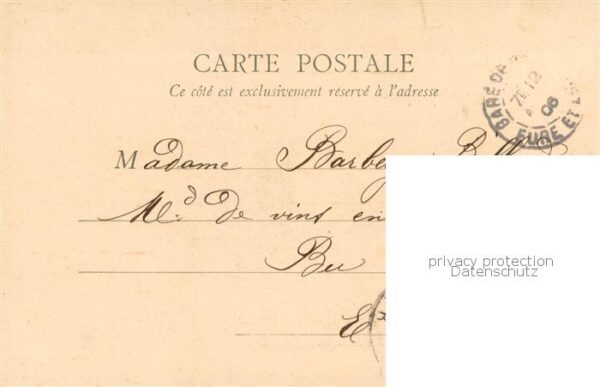 CARTE POSTALE
Ce côté est exclusivement réservé à l'adresse
7E 12
06
EURE ET
Madame
Md. de vins en
Bu
privacy protection
Datenschutz